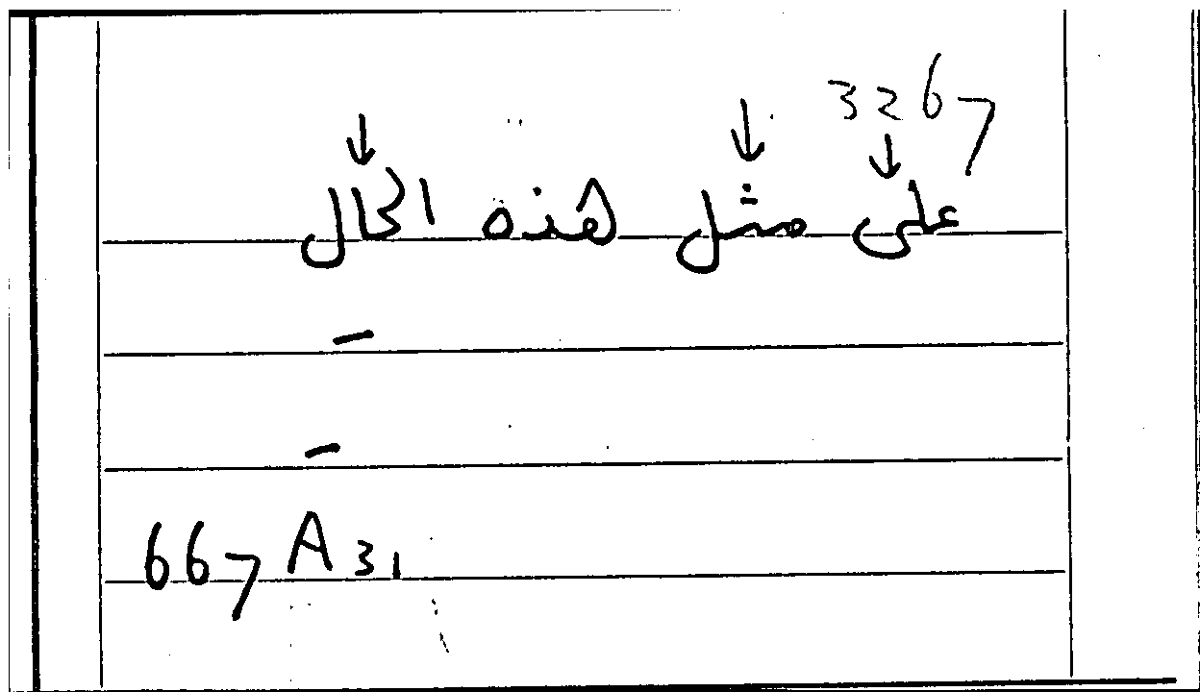 3267
↓ ↓ ↓
على مثل هذه الحال
-
-
667 A31